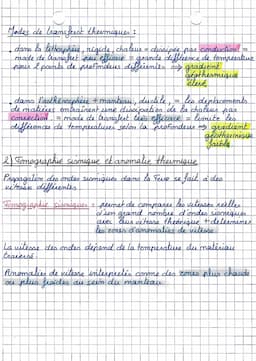 Modes de transfert thermiques :
. dans la lithosphère, rigide, chaleur = dissipée par conduction =
mode de transfert peu efficace = grande différence de température
pour 2 points de profondeurs différentes ⇒ gradient
géothermique
élevé
. dans l'asthénosphère + manteau, ductile, = les déplacements
de matières entraînent une dissipation de la chaleur par
convection = mode de transfert très efficace = limite les
différences de températures selon la profondeur ⇒ gradient
géothermique
faible
2) Tomographie sismique et anomalie thermique
Propagation des ondes sismiques dans la Terre se fait à des
vitesses différentes
Tomographie sismique : permet de comparer les vitesses réelles
d'un grand nombre d'ondes sismiques
avec leur vitesse théorique et déterminer
les zones d'anomalies de vitesse
La vitesse des ondes dépend de la température du matériau
traversé.
Anomalies de vitesse interprétés comme des zones plus chaudes
ou plus froides au sein du manteau.